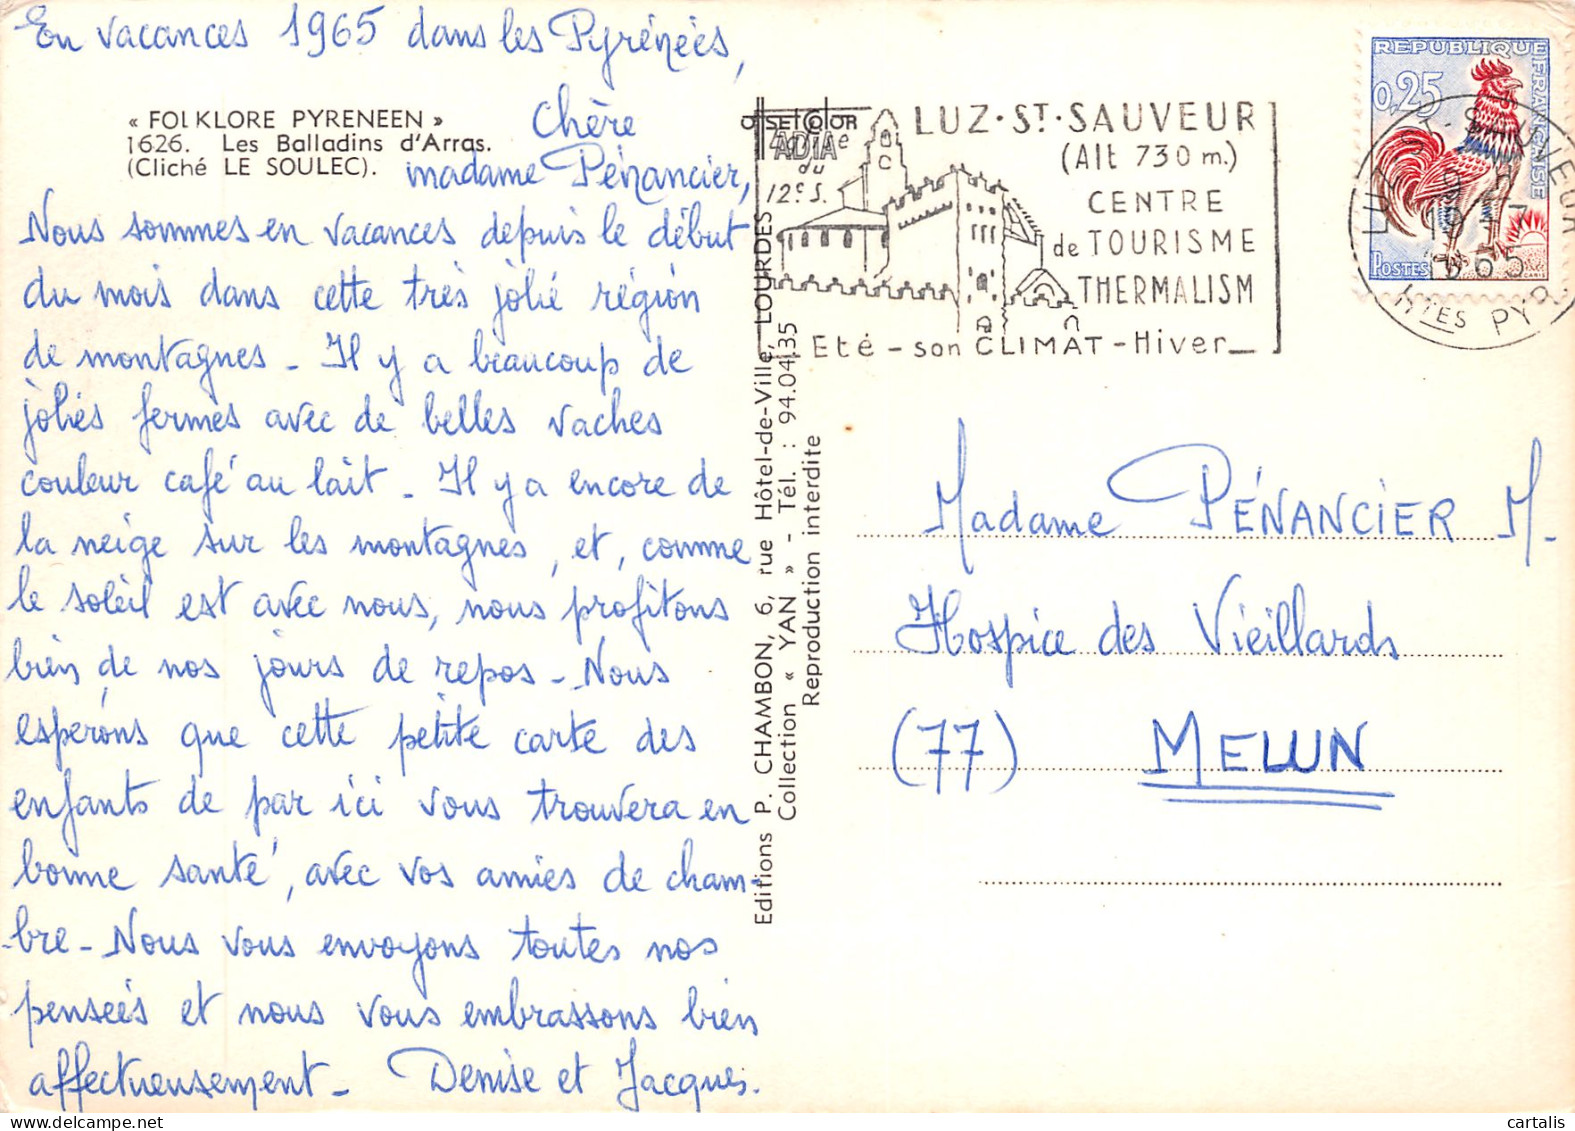 En vacances 1965 dans les Pyrénées,
« FOLKLORE PYRENEEN »
1626. Les Balladins d'Arras.
(Cliché LE SOULEC).
Chère
madame Pénancier,
Nous sommes en vacances depuis le début
du mois dans cette très jolie région
de montagnes - Il y a beaucoup de
jolies fermes avec de belles vaches
couleur café au lait - Il y a encore de
la neige sur les montagnes, et, comme
le soleil est avec nous, nous profitons
bien de nos jours de repos - Nous
espérons que cette petite carte des
enfants de par ici vous trouvera en
bonne santé, avec vos amies de cham-
-bre - Nous vous envoyons toutes nos
pensées et nous vous embrassons bien
affectueusement - Denise et Jacques.
Editions P. CHAMBON, 6, rue Hôtel-de-Ville, LOURDES
Collection « YAN » - Tél. : 94.04.35
Reproduction interdite
OFFSET COLOR
IADIA
du
12e S.
LUZ·ST·SAUVEUR
(Alt 730 m.)
CENTRE
de TOURISME
THERMALISM
Eté - son CLIMAT - Hiver
REPUBLIQUE FRANÇAISE
0,25
POSTES
LUZ ST-SAUVEUR
1965
HTES PYR.
Madame PÉNANCIER M.
Hospice des Vieillards
(77) MELUN
cartacla.com